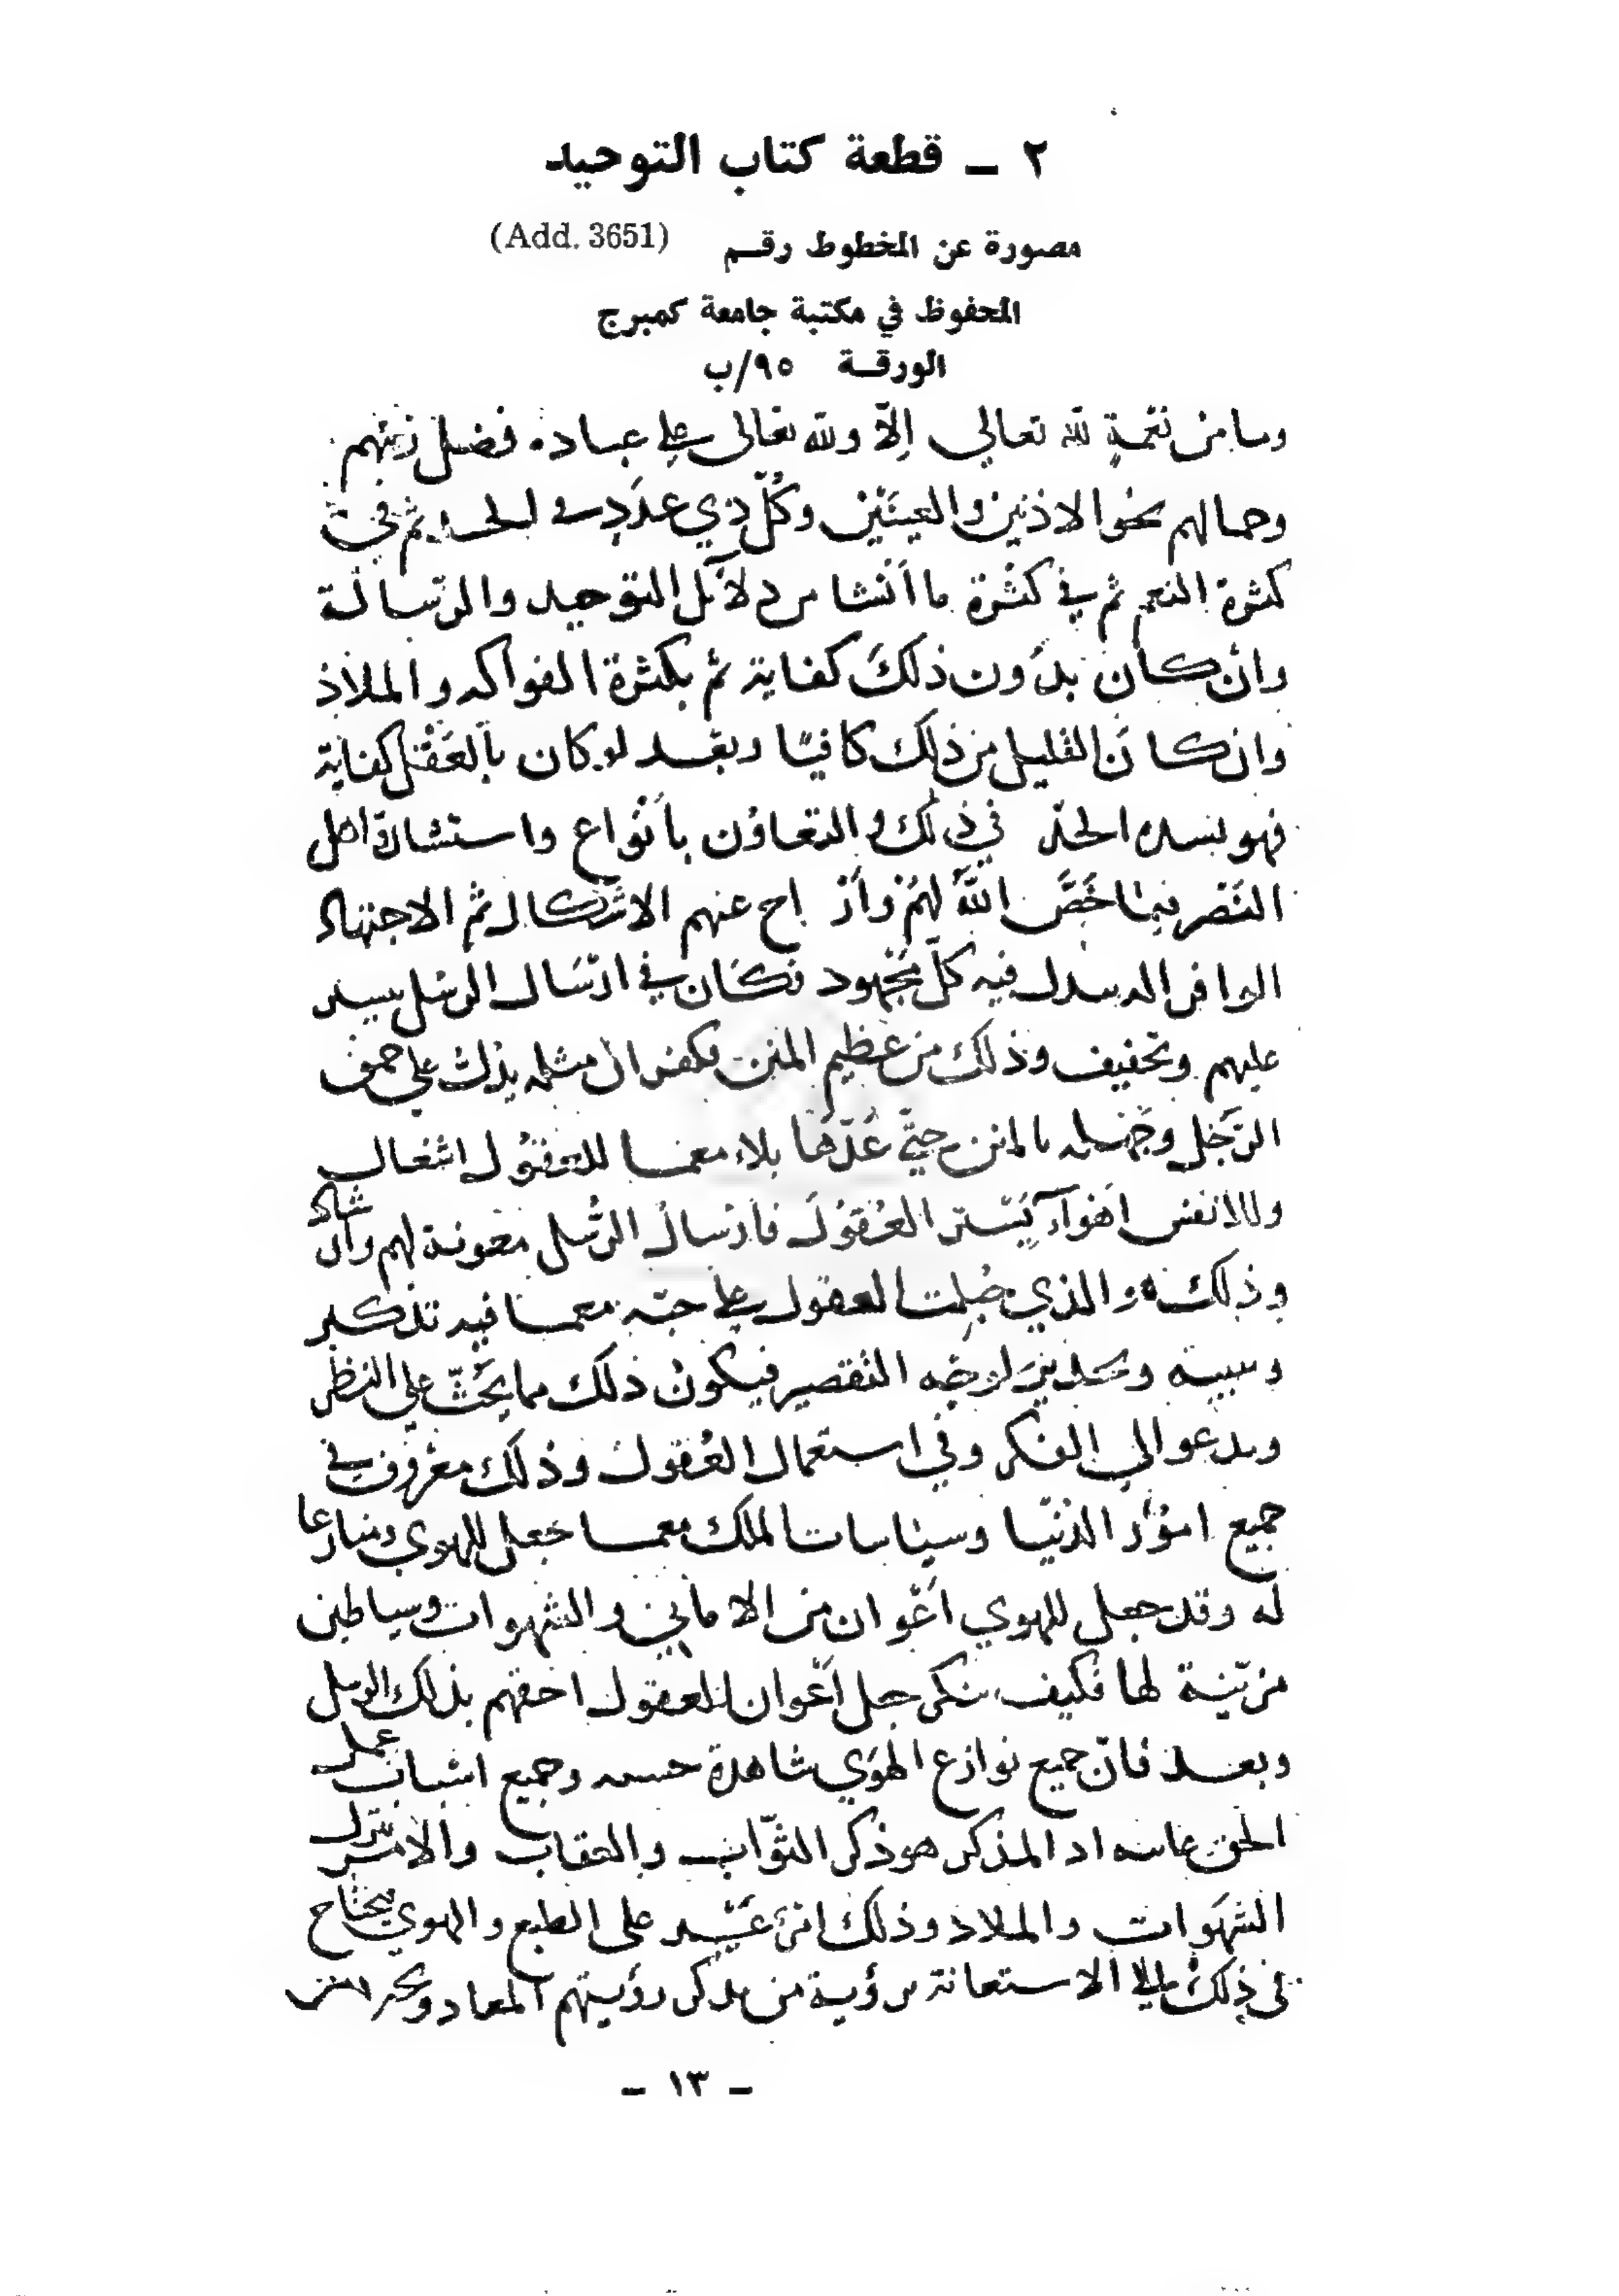 ٢ ــ قطعة كتاب التوحيد
مصورة عن المخطوط رقم (Add. 3651)
المحفوظ في مكتبة جامعة كمبرج
الورقة ٩٥/ب
وما من نعمة لله تعالى إلّا ولله تعالى على عباده فضل زينهم
وجمالهم نحو الاذنين والعينين وكلّ ذي عدد في ثم في
كثرة النعم ثم في كثرة ما أنشا من دلائل التوحيد والرسالة
وان كان بدون ذلك كفاية ثم بكثرة الفواكه والملاذ
وان كان القليل من ذلك كافيًا وبعد لو كان بالعقل كفاية
فهو في ذلك والتعاون بأنواع واستشارة اهل
النصر فيما خصّ الله لهم وأزاح عنهم الاشكال ثم الاجتهاد
الوافر فيه كلّ مجهود فكان في ارسال الرسل تيسير
عليهم وتخفيف وذلك من عظيم المنن فكفران مثله يدلّ على حمق
الرجل وجهله بالمنن حتّى عدّها بلاء معما للعقول اشغال
وللانفس أهواء يستر العقول فارسال الرّسل معونة لهم وارشاد
وذلك والذي جبلت العقول على حبّه معما فيه تذكير
لوجه التقصير فيكون ذلك مما يحثّ على النظر
ويدعو الى الفكر وفي استعمال العقول وذلك معروف في
جميع امور الدنيا وسياسات الملك معما جعل للهوى منازعا
له وقد جعل للهوي أعوان من الاماني والشهوات وشياطين
مزيّنة لها فكيف ينكر جعل أعوان للعقول احقهم بذلك الرسل
وبعد فانّ جميع نوازع الهوى شاهدة وجميع اسباب
الحق المذكر هو ذكر الثّواب والعقاب والامر بترك
الشهوات والملاذ وذلك امر عسير على الطبع والهوي يحتاج
في ذلك الى الاستعانة برؤية من يذكر رؤيتهم المعاد
ــ ١٣ ــ